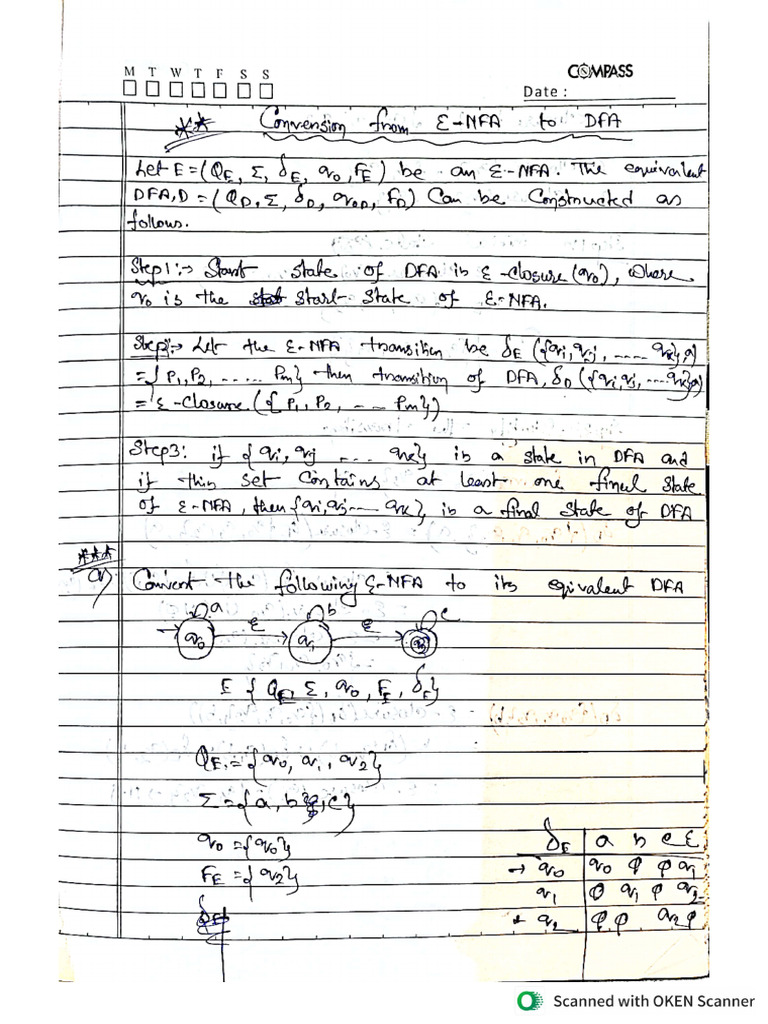 M T W T F S S
COMPASS
Date :
** Conversion from ε-NFA to DFA
Let E = (QE, Σ, δE, q0, FE) be an ε-NFA. The equivalent
DFA, D = (QD, Σ, δD, q0D, FD) Can be Constructed as
follows.
Step1:→ Start state of DFA is ε-closure (q0), where
q0 is the start state of ε-NFA.
Step2:→ Let the ε-NFA transition be δE ({qi, qj, ..... qk}, a)
= {P1, P2, ...... Pm} then transition of DFA, δD ({qi, qj, ....qk}, a)
= ε-Closure ({P1, P2, -- Pm})
Step3: if {qi, qj ... qk} is a state in DFA and
if this set contains at least one final state
of ε-NFA, then {qi, qj --- qk} is a final state of DFA
***
Q) Convert the following ε-NFA to its equivalent DFA
a b c
q0 ε q1 ε q2
E {QE, Σ, q0, FE, δE}
QE = {q0, q1, q2}
Σ = {a, b, c}
q0 = {q0}
FE = {q2}
δE
δE a b c ε
→ q0 q0 φ φ q1
q1 φ q1 φ q2
* q2 φ φ q2 φ
Scanned with OKEN Scanner